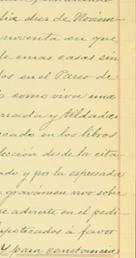 dia dres de Noviem-
noventa en que
de unas casas sin
dos en el Paseo de
como viva una
y tildada
cada en los libros
lección desde la cita
ado y por la expresada
gravámen nvo sobre
se advierte en el pedi-
ipotecados á favor
Y para constancia